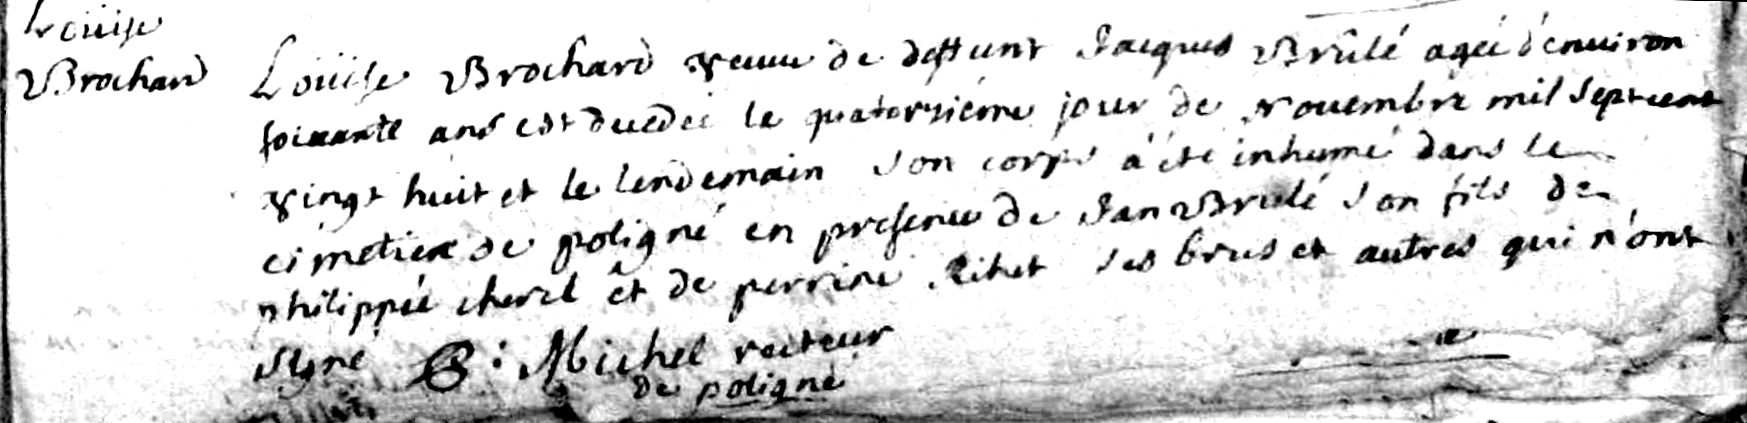 Louise
Brochard
Louise Brochard veuue de deffunt Jacques Brûlé agéé d'enuiron
soixante ans est decedéé le quatorziéme jour de Nouembre mil sept cent
vingt huit et le lendemain son corps à été inhumé dans le
cimetiere de poligné en presence de Jan Brulé son fils de
philippée cherel et de perrine Ribet ses brus et autres qui n'ont
signé G: Michel recteur
de poligné